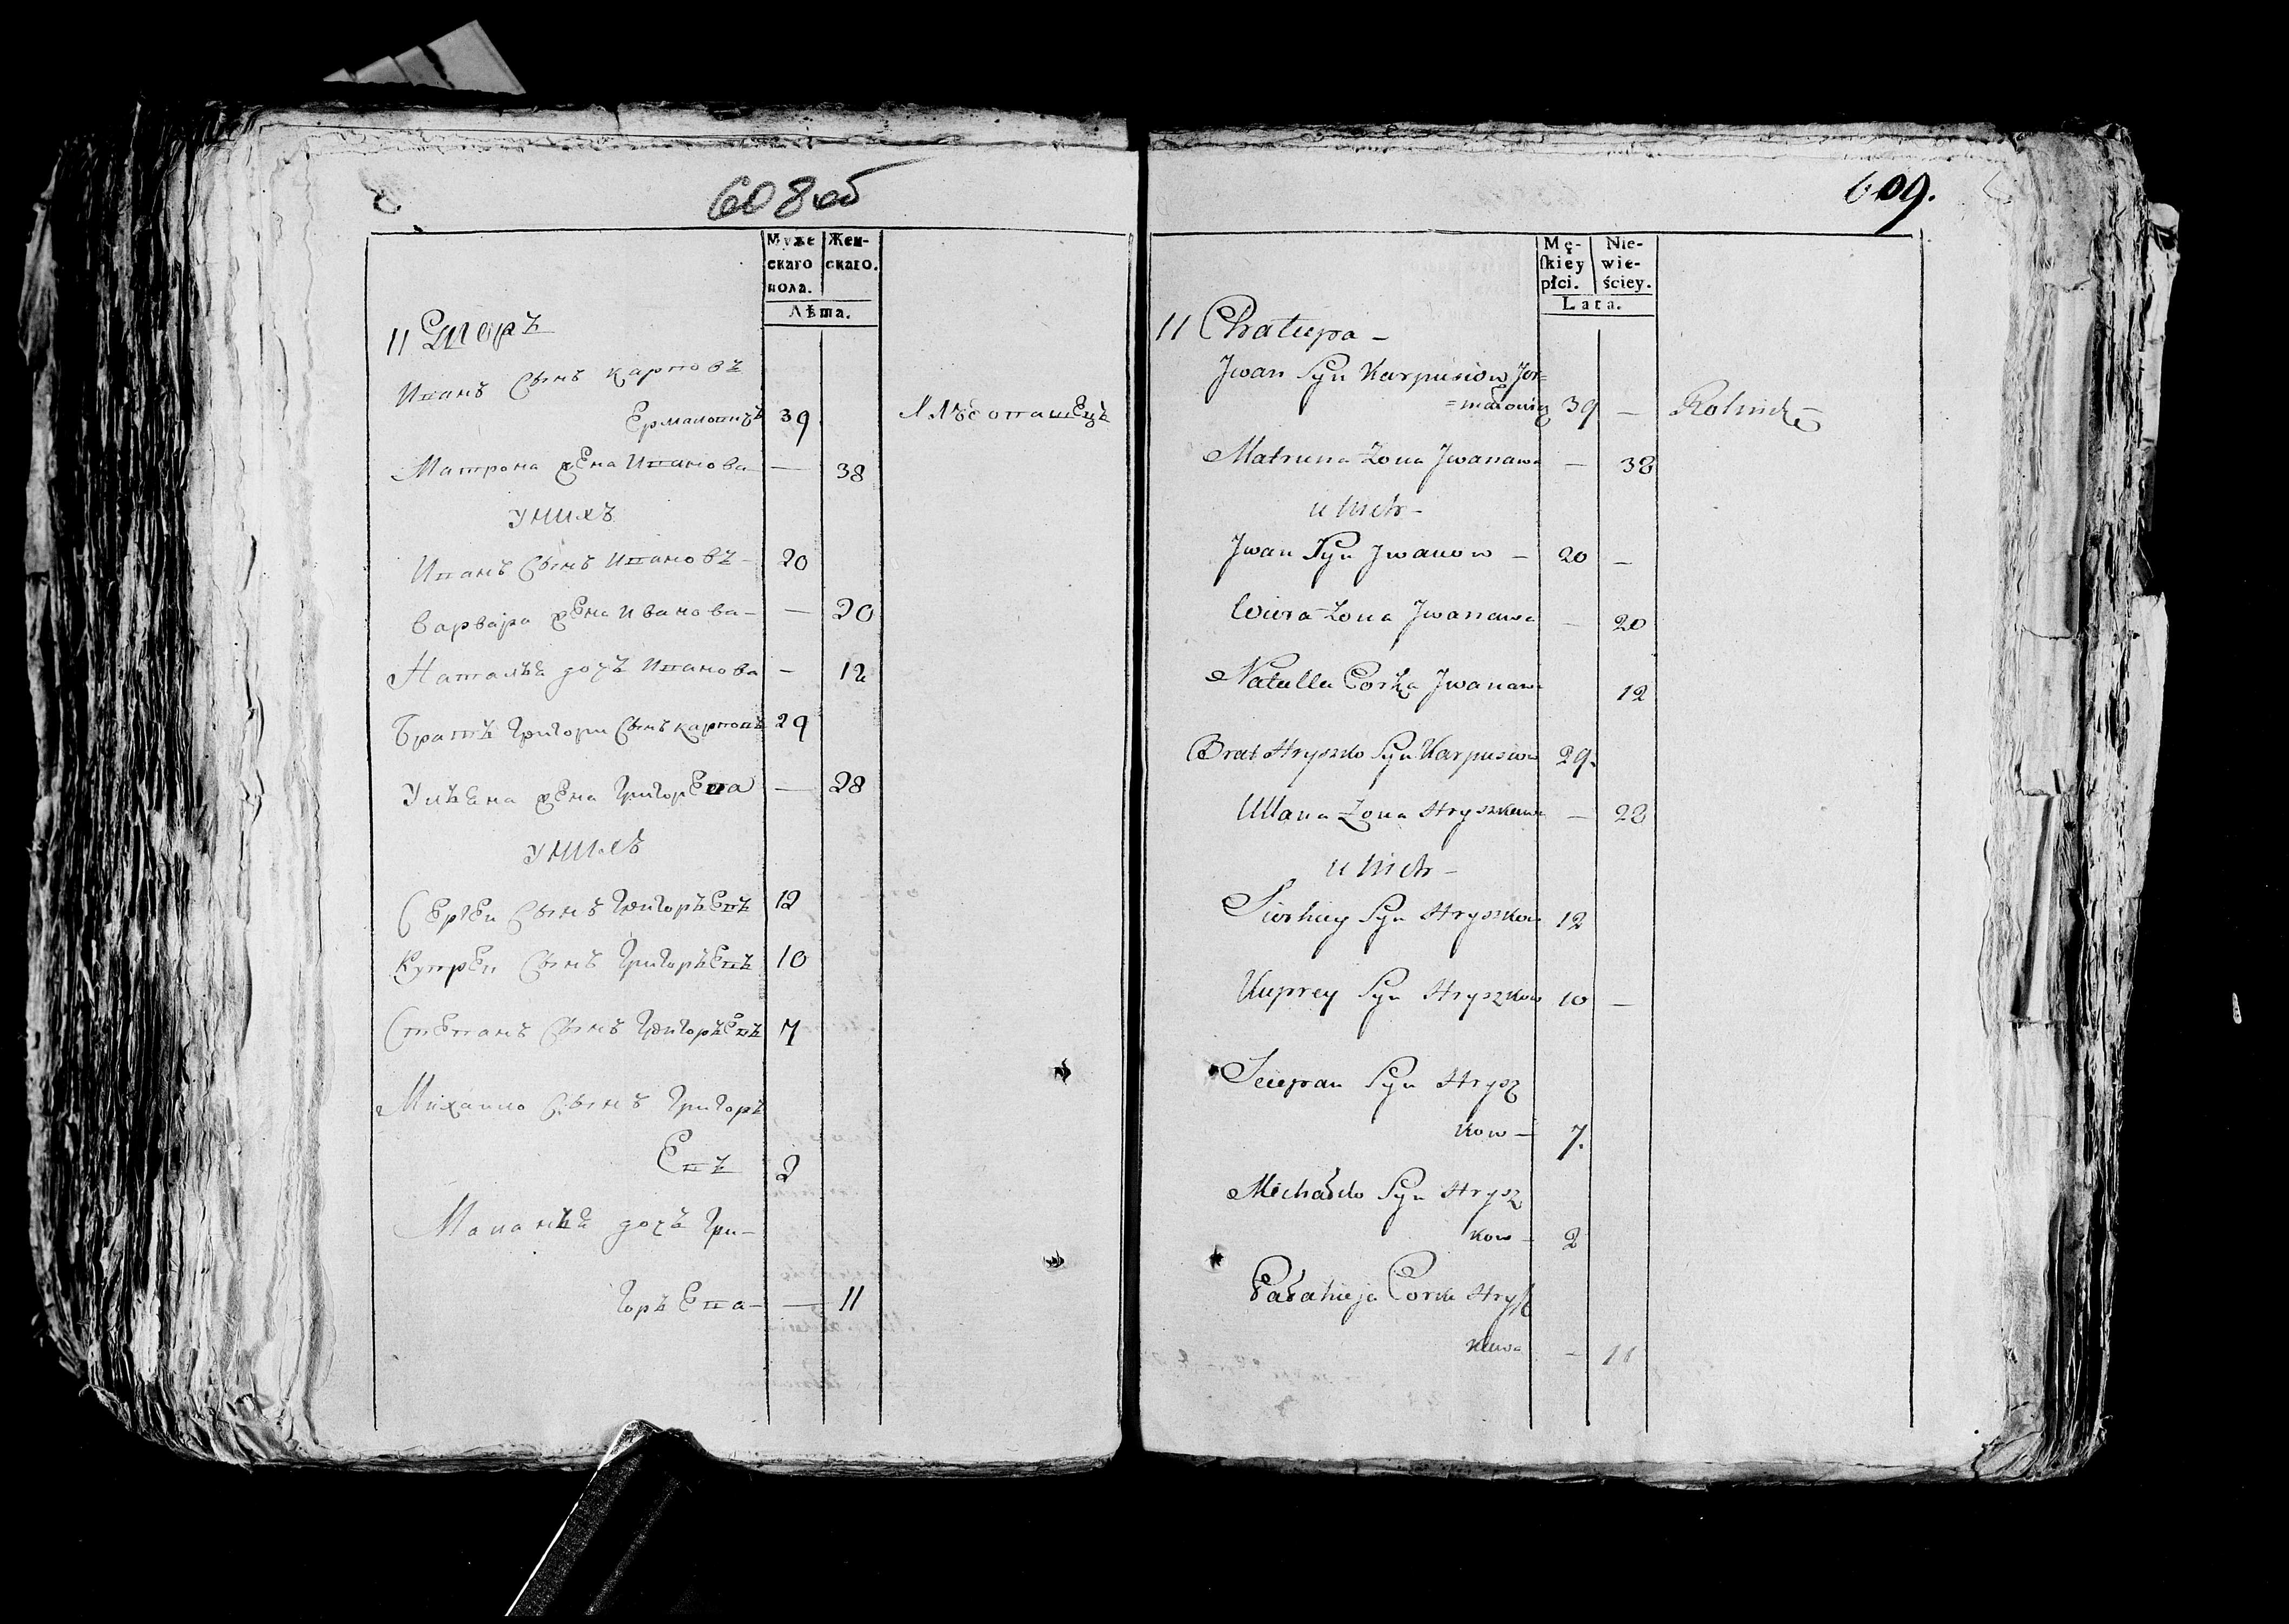 608 об
Муже
скаго
пола.
Жен-
скаго.
Лѣта.
11 Дворъ
Иванъ Сынъ карповъ
Ермаловичъ 39
Хлѣбопашецъ
Матрона жена Иванова — 38
У нихъ
Иванъ Сынъ Ивановъ - 20
варвара жена Иванова - — 20
Наталья дочъ Иванова — 12
Братъ григори Сынъ карповъ 29
Ульяна жена григорева — 28
У нихъ
Сергеи Сынъ григорьевъ 12
Купреи Сынъ григорьевъ 10
Степанъ Сынъ григорьевъ 7
Михаило Сынъ григорь
евъ 2
Маланья дочъ гри-
горьева - — 11
609.
Mę-
ſkiey
płci.
Nie-
wie-
ściey.
Lata.
11 Chałupa -
Jwan Syn Karpusiow Jer=
=małowicz 39 — Rolnick
Matruna Żona Jwanawa — 38
u nich -
Jwan Syn Jwanow — 20 —
Wiera Żona Jwanawa — 20
Natalla Corka Jwanawa 12
Brat Hryszko Syn Karpusiow 29.
Ullana Żona Hryszkawa — 28
u nich -
Sierhiey Syn Hryszkow 12
Kuprey Syn Hryszkow 10 —
Sciepan Syn Hrysz
kow — 7.
Michałko Syn Hrysz
kow - 2
Corka Hryſz
kawa - 11